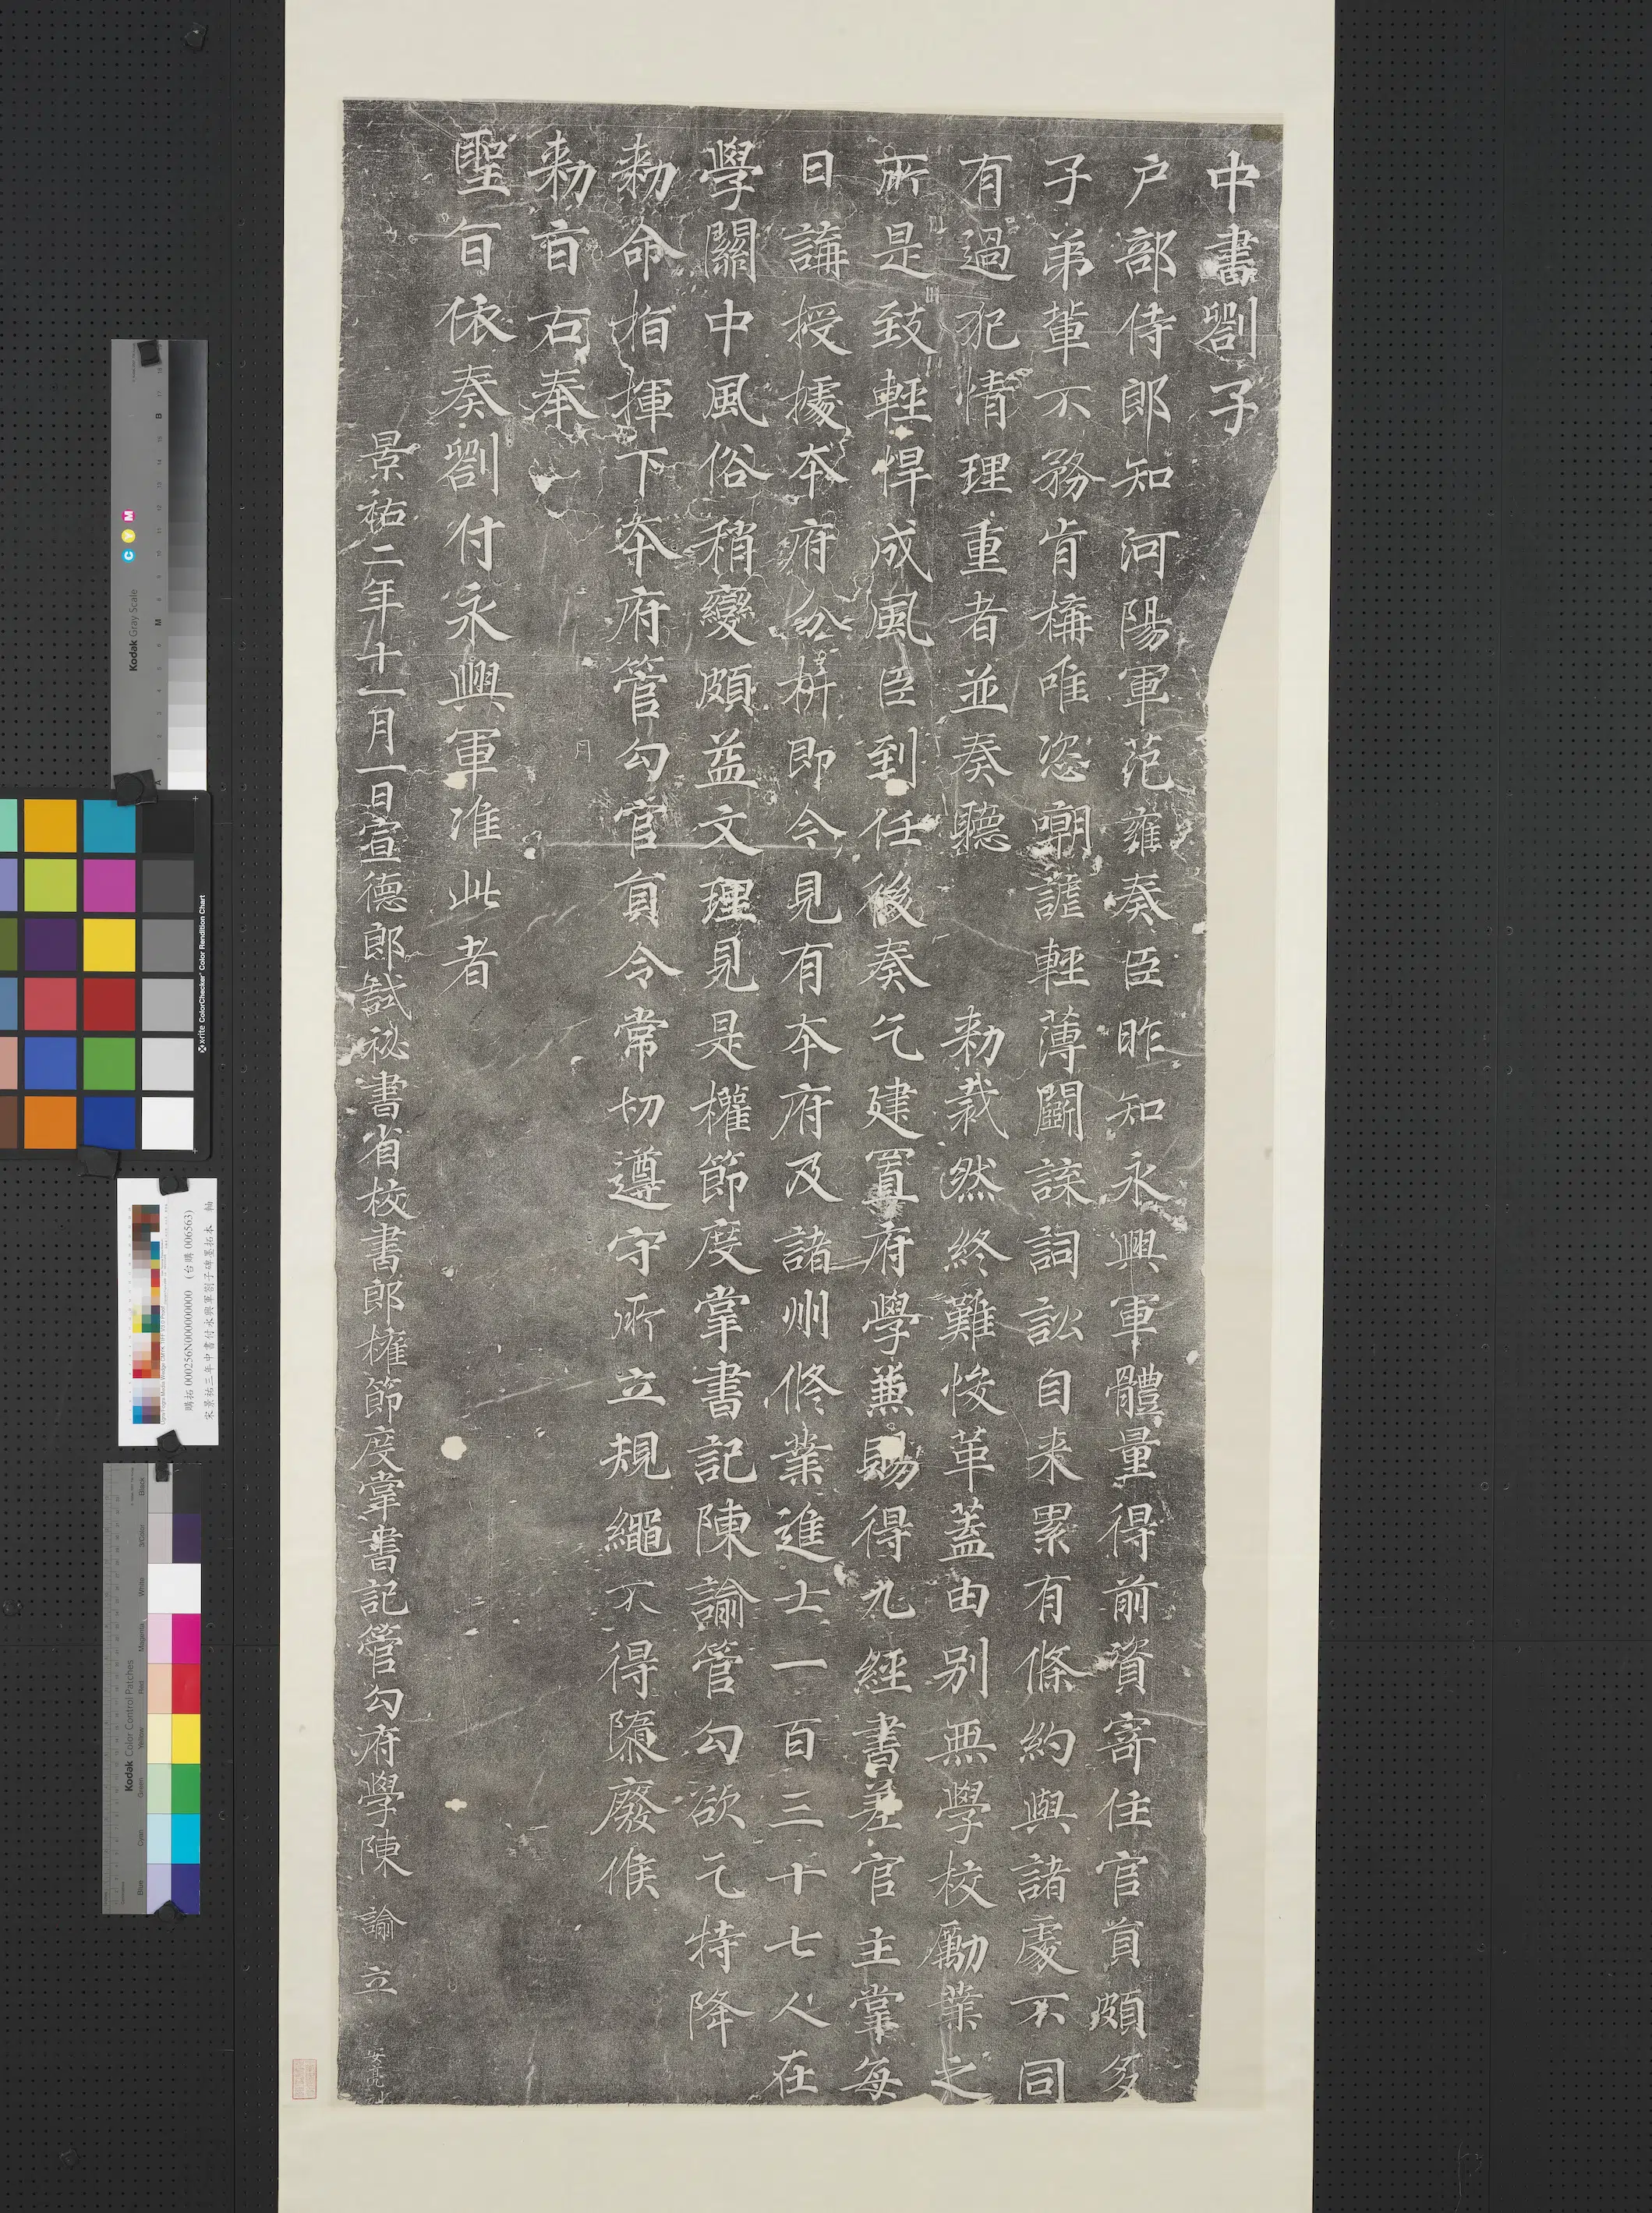 中書劄子
户部侍郎知河陽軍范雍奏臣昨知永興軍體量得前資寄住官員頗多
子弟輩不務肯構唯恣嘲謔輕薄鬭諑詞訟自来累有條約與諸處不同
有過犯情理重者並奏聽 勑裁然終難悛革蓋由别無學校勵業之
所是致輕悍成風臣到任後奏乞建置府學兼賜得九經書差官主掌每
日講授據本府分析即今見有本府及諸州修業進士一百三十七人在
學關中風俗稍變頗益文理見是權節度掌書記陳諭管勾欲乞特降
勑命指揮下本府管勾官員令常切遵守所立規繩不得隳廢候
勑旨右奉
聖旨依奏劄付永興軍准此者
景祐二年十一月一日宣德郎試祕書省校書郎權節度掌書記管勾府學陳 諭 立
安亮
Kodak Gray Scale
C Y M
x-rite ColorChecker Color Rendition Chart
購拓 000256N000000000 (台購 006563)
宋景祐三年中書付永興軍劄子碑墨拓本 軸
Kodak Color Control Patches
Blue Cyan Green Yellow Red Magenta White 3/Color Black